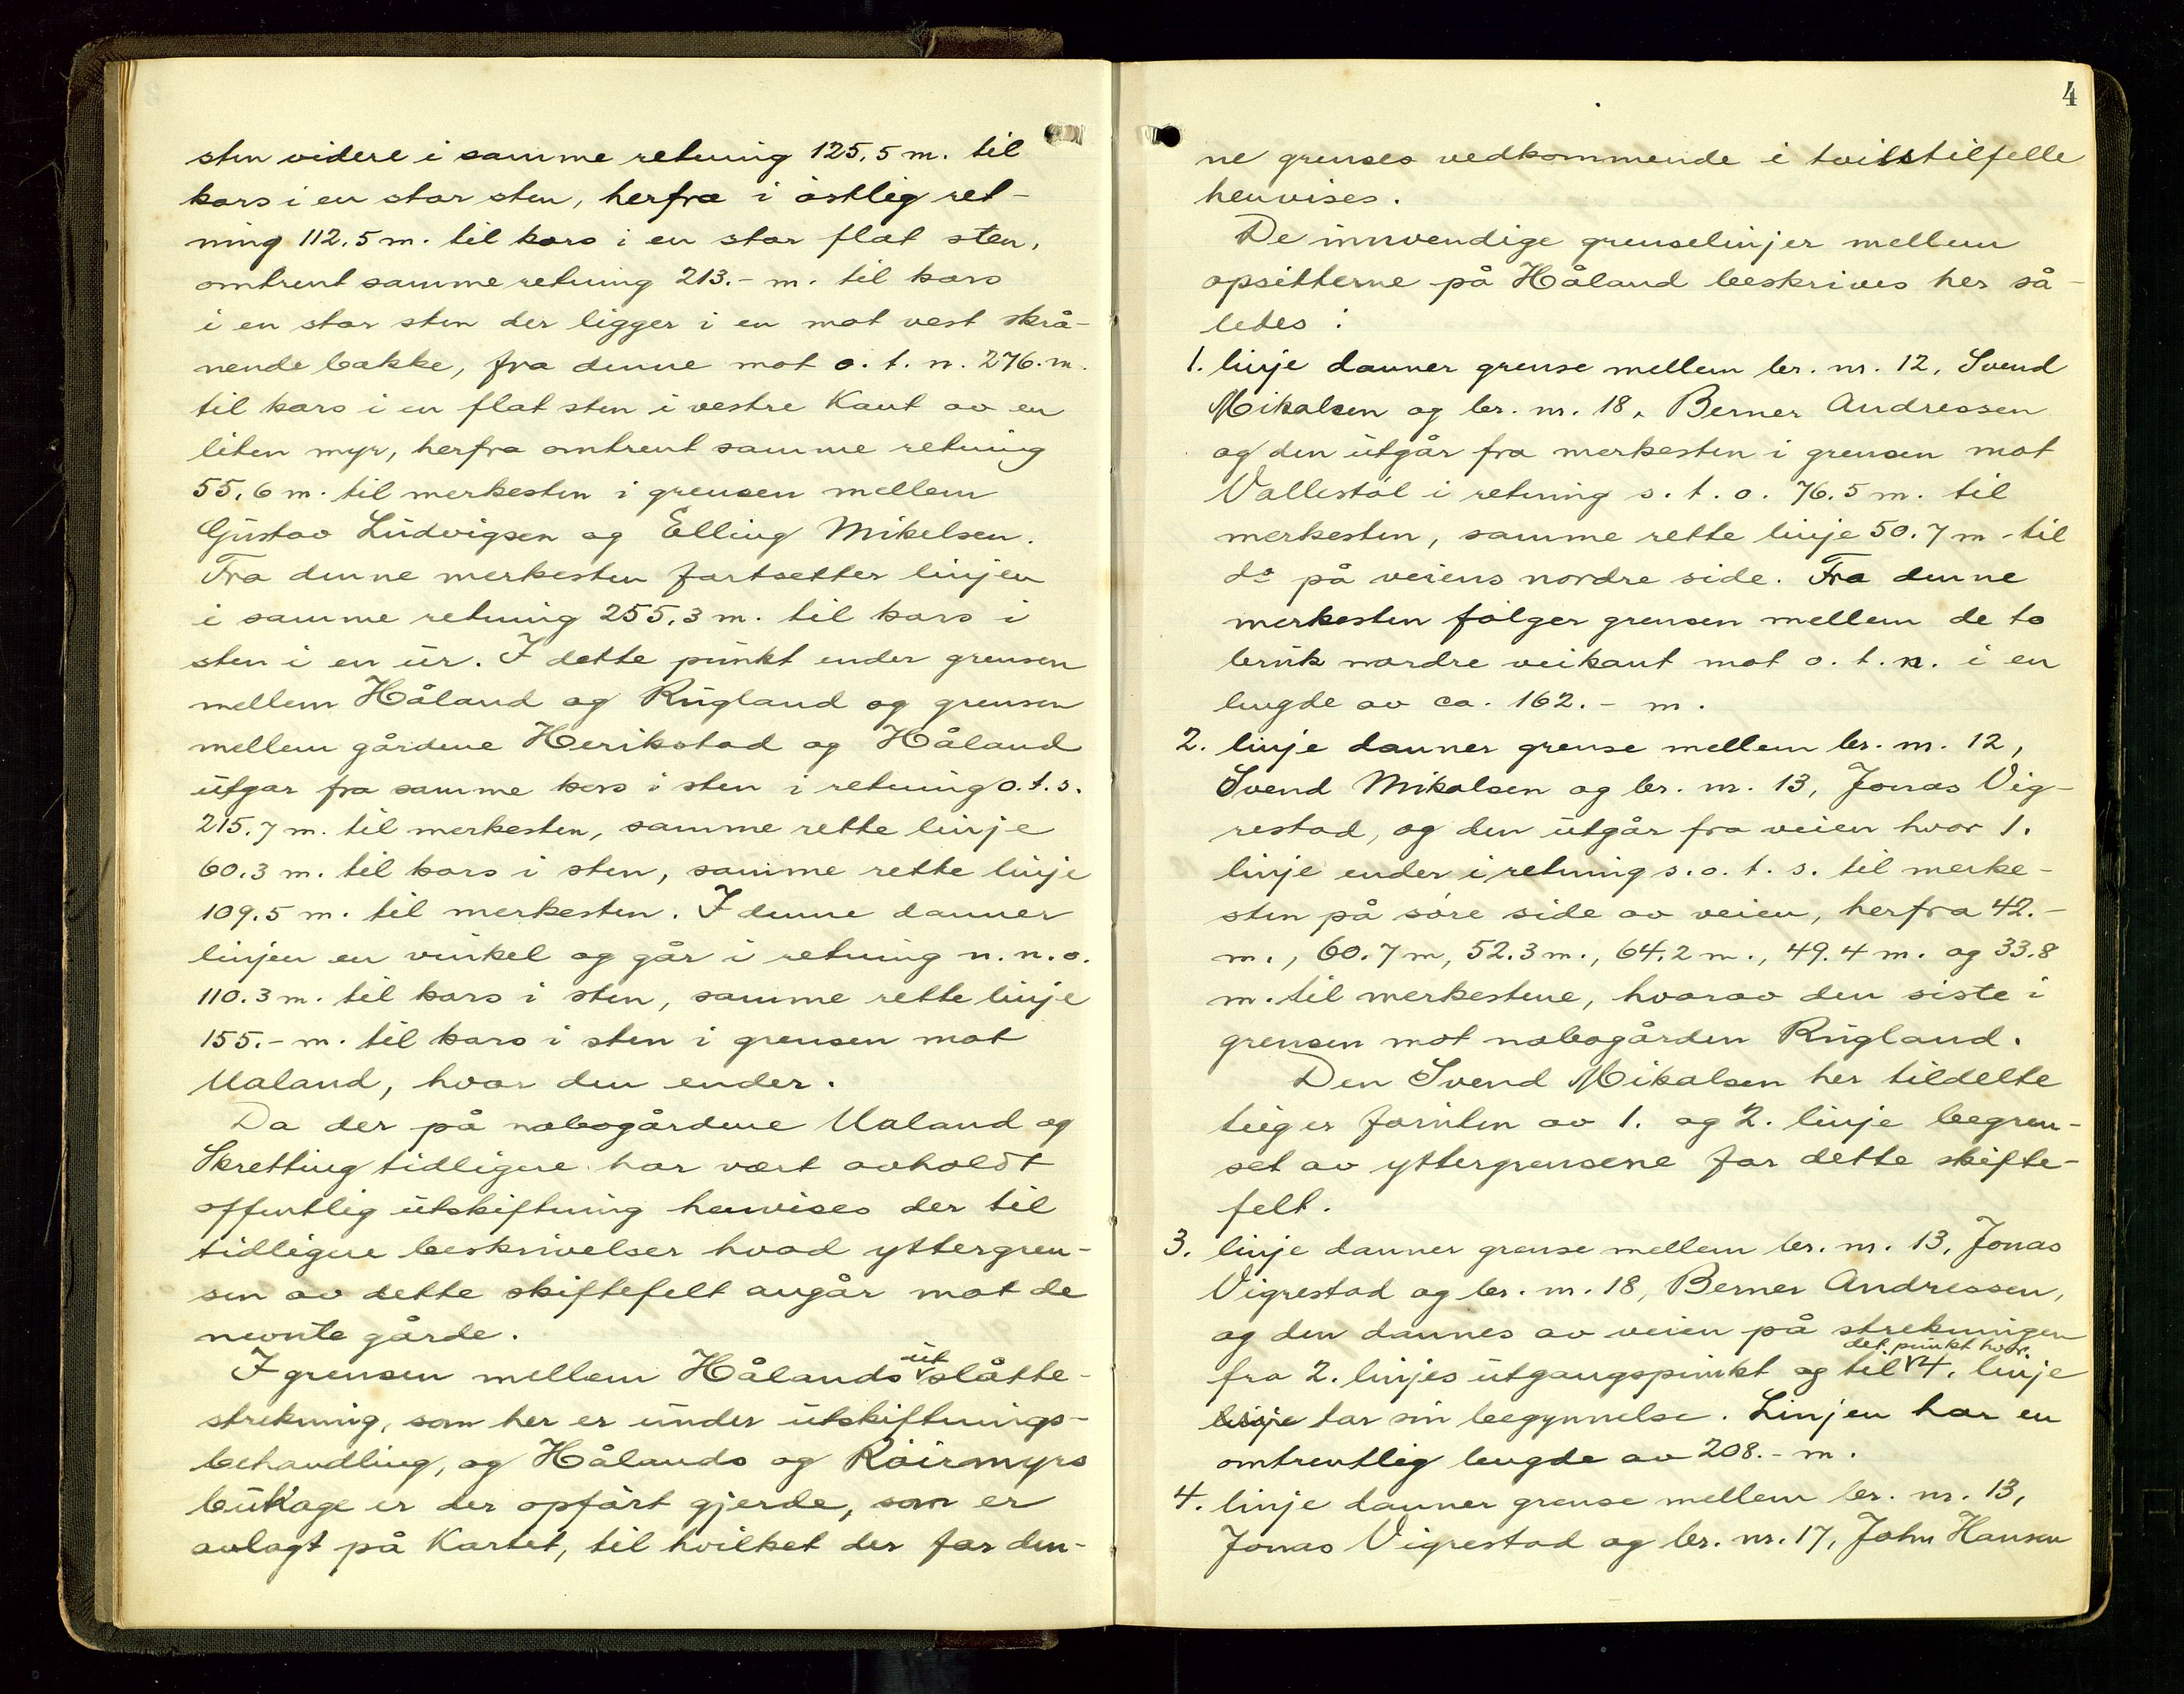 sten videre i samme retning 125,5 m. til
kors i en stor sten, herfra i östlig ret-
ning 112.5 m. til kors i en stor flat sten,
omtrent samme retning 213.- m. til kors
i en stor sten der ligger i en mot vest skrå-
nende bakke, fra denne mot o. t. n. 276. m.
til kors i en flat sten i vestre Kant av en
liten myr, herfra omtrent samme retning
55,6 m. til merkesten i grensen mellem
Gustav Ludvigsen og Elling Mikelsen.
Fra denne merkesten fortsetter linjen
i samme retning 255,3 m. til kors i
sten i en ur. I dette punkt ender grensen
mellem Håland og Rugland og grensen
mellem gårdene Herikstad og Håland
utgar fra samme kors i sten i retning o.t.s.
215.7 m. til merkesten, samme rette linje
60.3 m. til kors i sten, samme rette linje
109.5 m. til merkesten. I denne danner
linjen en vinkel og går i retning n. n. o.
110.3 m. til kors i sten, samme rette linje
155.- m. til kors i sten i grensen mot
Ualand, hvor den ender.
Da der på nabogårdene Ualand og
Skretting tidligere har vært avholdt
offentlig utskiftning henvises der til
tidligere beskrivelser hvad yttergren-
sen av dette skiftefelt angår mot de
nevnte gårde.
I grensen mellem Hålands ut slåtte-
strekning, som her er under utskiftnings-
behandling, og Hålands og Röirmyrs
buhage er der opfört gjerde, som er
avlagt på Kartet, til hvilket der for den-
4
ne grenses vedkommende i tvilstilfelle
henvises.
De innvendige grenselinjer mellem
opsitterne på Håland beskrives her så-
ledes:
1. linje danner grense mellem br. nr. 12, Svend
Mikalsen og br. nr. 18, Berner Andressen
og den utgår fra merkesten i grensen mot
Vallestöl i retning s. t. o. 76.5 m. til
merkesten, samme rette linje 50.7 m - til
do på veiens nordre side. Fra denne
merkesten fölger grensen mellem de to
bruk nordre veikant mot o. t. n. i en
lengde av ca. 162.- m.
2. linje danner grense mellem br. nr. 12,
Svend Mikalsen og br. nr. 13, Jonas Vig-
restad, og den utgår fra veien hvor 1.
linje ender i retning s. o. t. s. til merke-
sten på söre side av veien, herfra 42.-
m., 60.7 m, 52.3 m., 64.2 m., 49.4 m. og 33.8
m. til merkestene, hvorav den siste i
grensen mot nabogården Rugland.
Den Svend Mikalsen her tildelte
teig er foruten av 1. og 2. linje begren-
set av yttergrensene for dette skifte-
felt.
3. linje danner grense mellem br. nr. 13, Jonas
Vigrestad og br. nr. 18, Berner Andressen,
og den dannes av veien på strekningen
fra 2. linjes utgangspunkt og til det punkt hvor 4. linje
linje tar sin begynnelse. Linjen har en
omtrentlig lengde av 208.- m.
4. linje danner grense mellem br. nr. 13,
Jonas Vigrestad og br. nr. 17, John Hansen